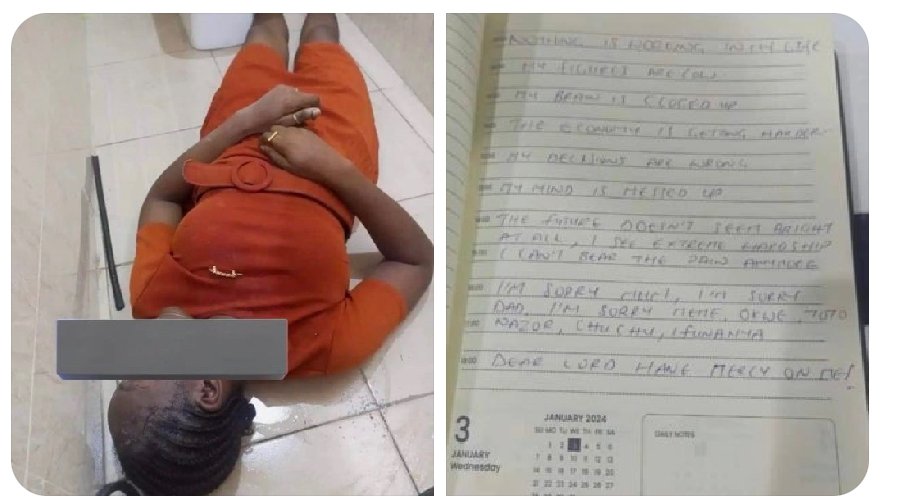 NOTHING IS WORKING IN MY LIFE
MY FIGURES ARE LOW
MY BRAIN IS CLOGED UP
THE ECONOMY IS GETTING HARDER
MY DECISIONS ARE WRONG
MY MIND IS MESSED UP
THE FUTURE DOESN'T SEEM BRIGHT
AT ALL, I SEE EXTREME HARDSHIP
I CAN'T BEAR THE PAIN ANYMORE
I'M SORRY I'M SORRY
DAD, I'M SORRY
NAZOR, CHUCHU, IFUNANYA
DEAR LORD HAVE MERCY ON ME!
3
JANUARY
Wednesday
JANUARY 2024
SU MO TU WE TH FR SA
1 2 3 4 5 6
7 8 9 10 11 12 13
14 15 16 17 18 19 20
21 22 23 24 25 26 27
DAILY NOTES